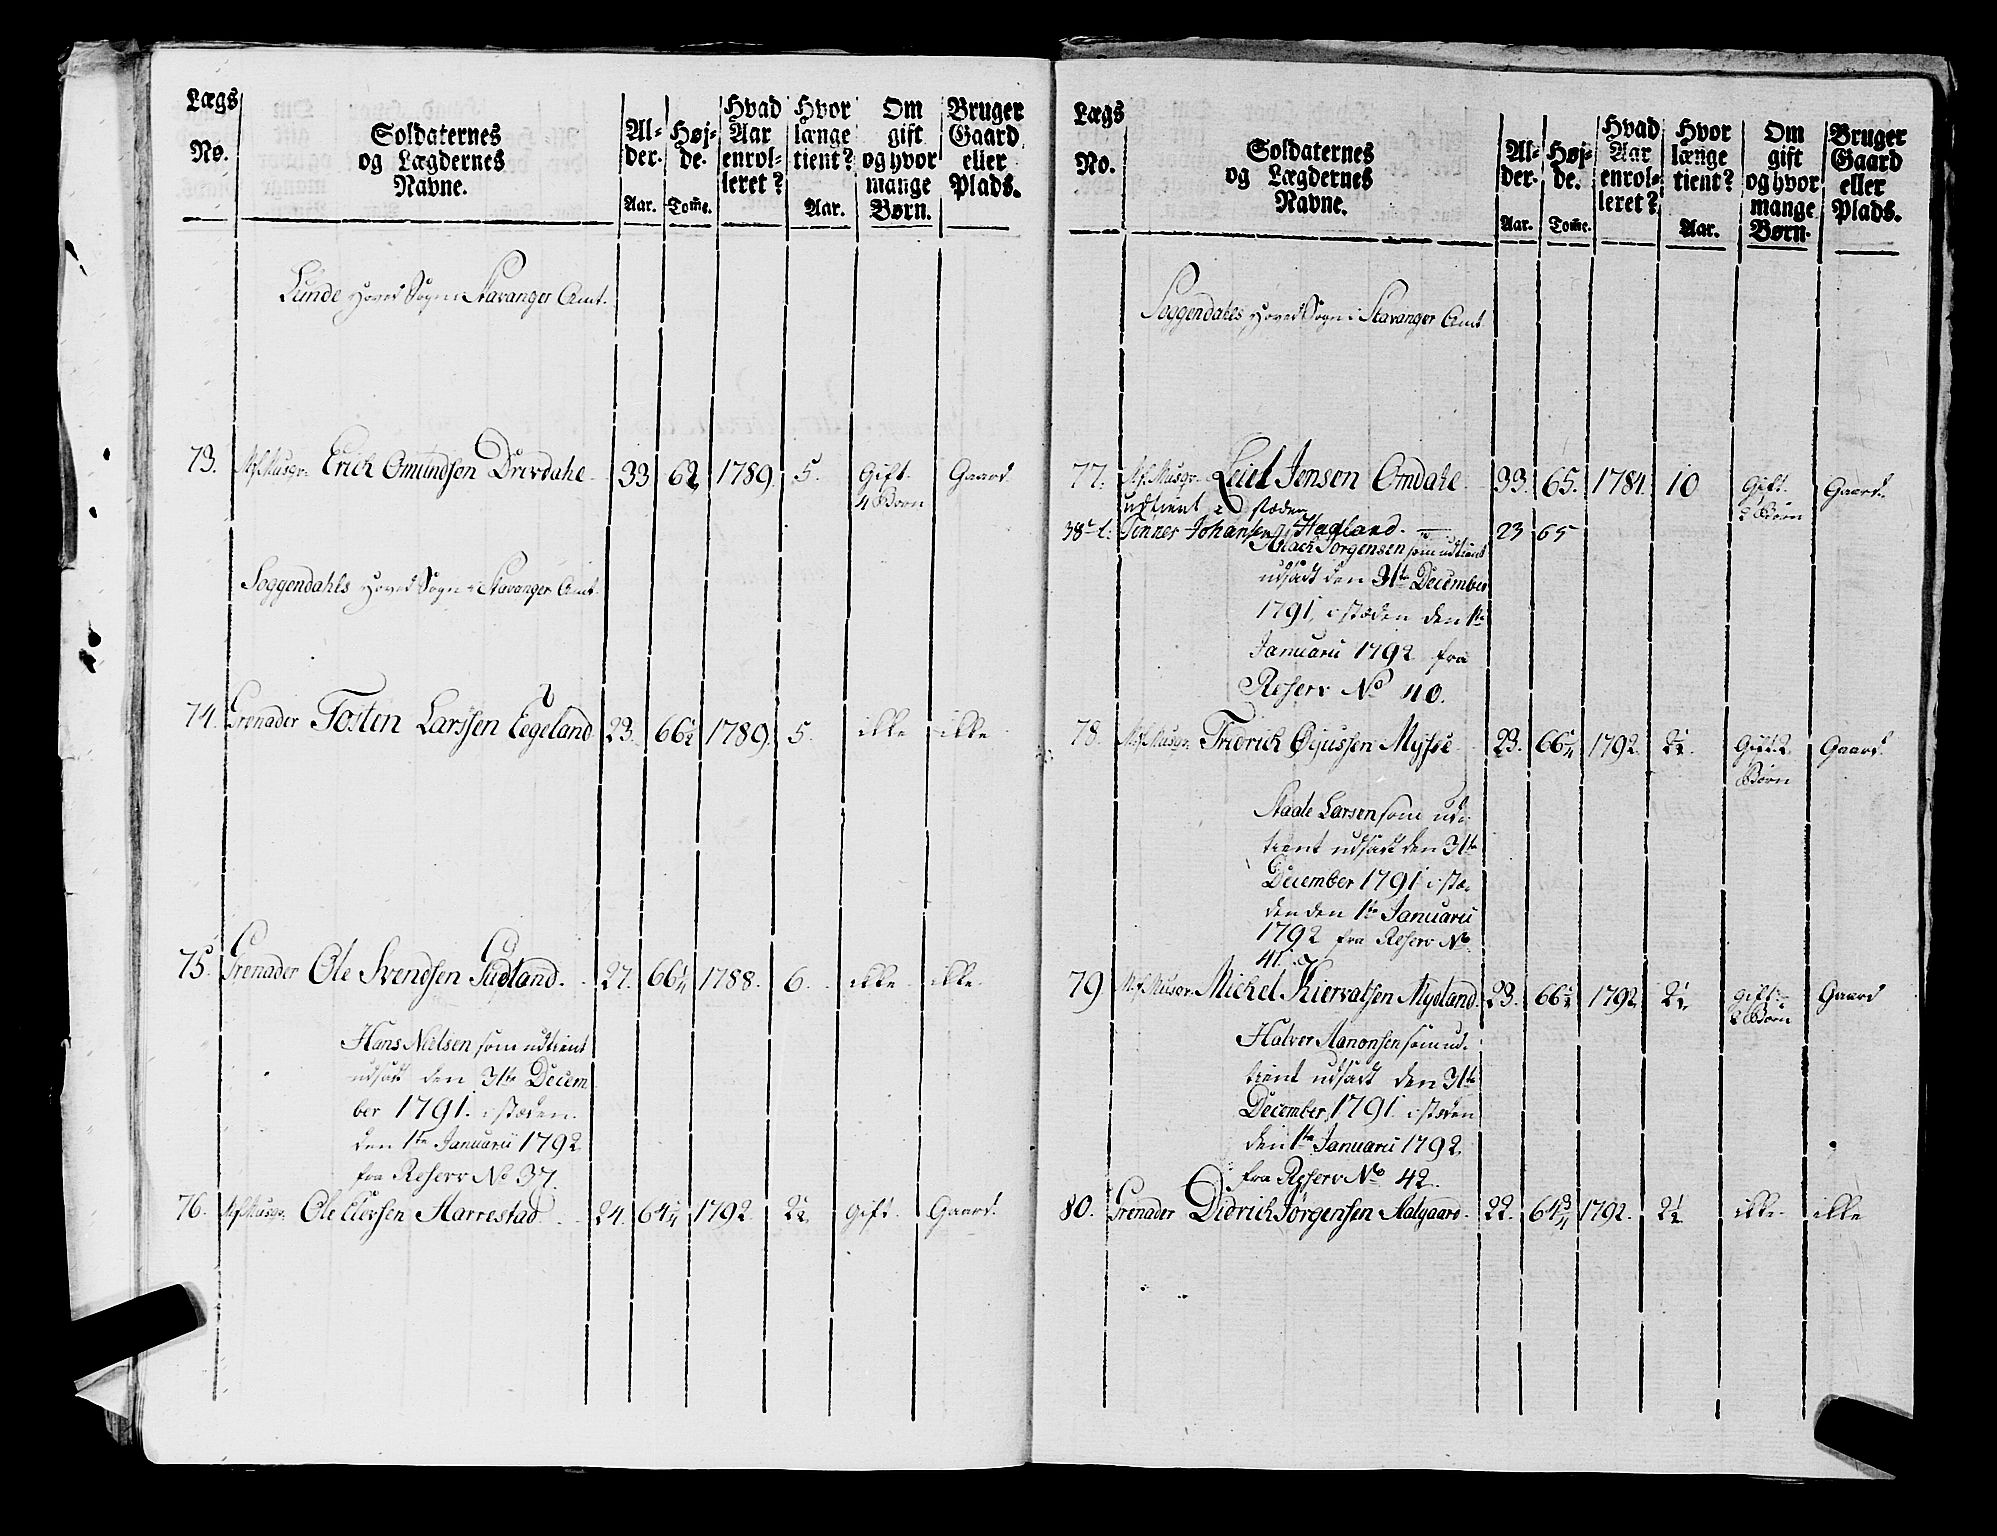 Lægs No. | Soldaternes og Lægdernes Navne. | Al-der. Aar. | Høj-de. Tome. | Hvad Aar enrol-leret? | Hvor længe tient? Aar. | Om gift og hvor mange Børn. | Bruger Gaard eller Plads.
Lunde Hoved Sogn i Stavanger Amt.
73. Erich Omundsen Drivdahl 33 62 1789. 5. Gift. Gaard
4 Børn
Soggendahls Hoved Sogn i Stavanger Amt.
74. Grenader Tosten Larssen Eegeland 23. 66½ 1789. 5. ikke ikke
75. Grenader Ole Svendsen Sudland. 27. 66¼ 1788. 6. ikke ikke.
Hans Nielsen som udtient
udsadt den 31te Decem
ber 1791. i stæden
den 1te Januarii 1792
fra Reserv No 37.
76. Ole Harrestad 24. 64¼ 1792. 2½ Gift. Gaard.
Lægs No. | Soldaternes og Lægdernes Navne. | Al-der. Aar. | Høj-de. Tome. | Hvad Aar enrol-leret? | Hvor længe tient? Aar. | Om gift og hvor mange Børn. | Bruger Gaard eller Plads.
Soggendahls Hoved Sogn i Stavanger Amt
77. Leief Jensen Omdahl 33. 65. 1784. 10 Gift. Gaard.
2 Børn
udtient i stæden
Tønnes Johansen Hagland. 23 65
Jørgensen som udtient
udsadt den 31te December
1791, i stæden den 1te
Januarii 1792 fra
Reserv No 40.
78. Fridrich Mysse 23. 66¼ 1792. 2½ Gift 2 Gaard.
Børn
Staale Larsen som ud-
tient udsadt den 31te
December 1791 i stæ-
den den 1te Januarii
1792 fra Reserv No
41.
79 Michel Kiervalsen Mydland 23. 66½ 1792 2½ gift Gaard
2 Børn
Halvor Aanonsen som ud-
tient udsadt den 31te
December 1791 i stæden
den 1te Januarii 1792
fra Reserv No 42.
80. Grenader Didrich Jørgensen Aalgaard. 22. 64¾ 1792. 2½ ikke ikke